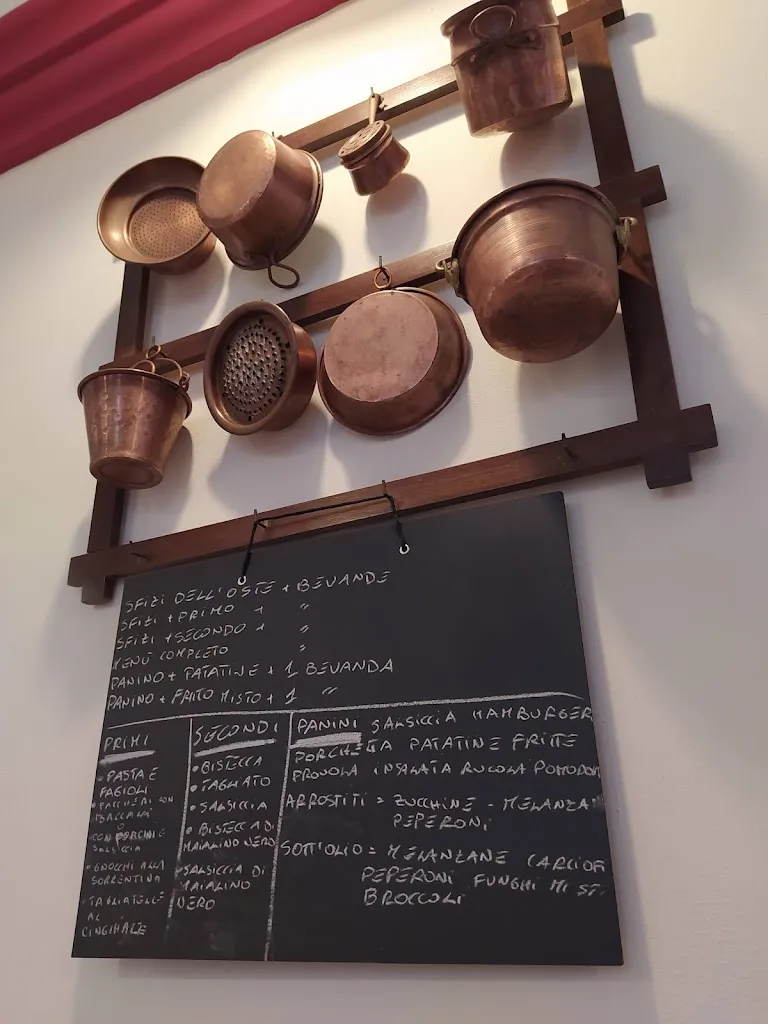 SFIZI DELL'OSTE + BEVANDE
SFIZI + PRIMO + "
SFIZI + SECONDO + "
MENÙ COMPLETO "
PANINO + PATATINE + 1 BEVANDA
PANINO + FRITO MISTO + 1 "
PRIMI
• PASTA E
FAGIOLI
• PACCHERI CON
BACCALÀ
O
CON PORCINI E
SALSICCIA
• GNOCCHI ALLA
SORRENTINA
• TAGLIATELLE
AL
CINGHIALE
SECONDI
• BISTECCA
• TAGLIATO
• SALSICCIA
• BISTECCA DI
MAIALINO NERO
• SALSICCIA DI
MAIALINO
NERO
PANINI SALSICCIA HAMBURGER
PORCHETTA PATATINE FRITTE
PROVOLA INSALATA RUCOLA POMODOR
ARROSTITI = ZUCCHINE - MELANZA
PEPERONI
SOTT'OLIO = MELANZANE CARCIOF
PEPERONI FUNGHI MISTI
BROCCOLI